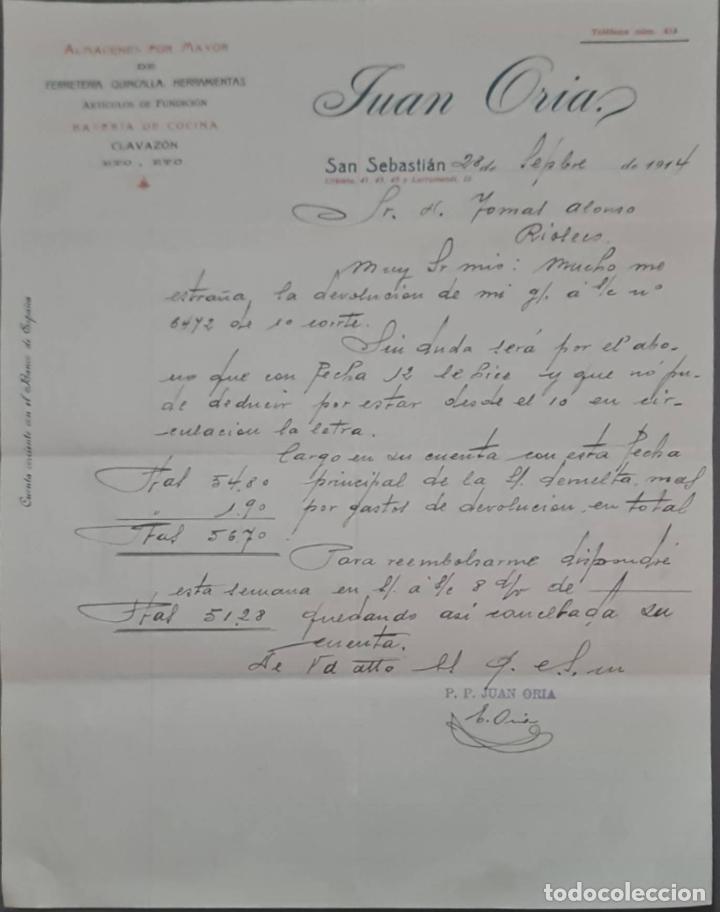 Teléfono núm. 414
ALMACENES POR MAYOR
DE
FERRETERIA, QUINCALLA, HERRAMIENTAS
ARTÍCULOS DE FUNDICIÓN
BATERÍA DE COCINA
CLAVAZÓN
ETC., ETC
Juan Oria
San Sebastián 28 de Sepbre de 1914
Urbieta, 41, 43, 45 y Larramendi,
Sr. D. Tomas Alonso
Rioseco
Muy Sr mio: Mucho me
estraña, la devolucion de mi g/. á s/c nº
6472 de 10 corrte.
Sin duda será por el abo-
no que con fecha 12 le hice y que no pu-
de deducir por estar desde el 10 en cir-
culacion la letra.
Cargo en su cuenta con esta fecha
Ptas 54,80 principal de la L/. devuelta, mas
" 1.90 por gastos de devolucion, en total
Ptas 56,70
Para reembolsarme dispondré
esta semana en L/. á s/c 8 d/v de
Ptas 51,28 quedando asi cancelada su
cuenta.
De Vd atto S.S. q. e. s. m
P. P. JUAN ORIA
Oria
Cuenta corriente con el Banco de España
todocoleccion